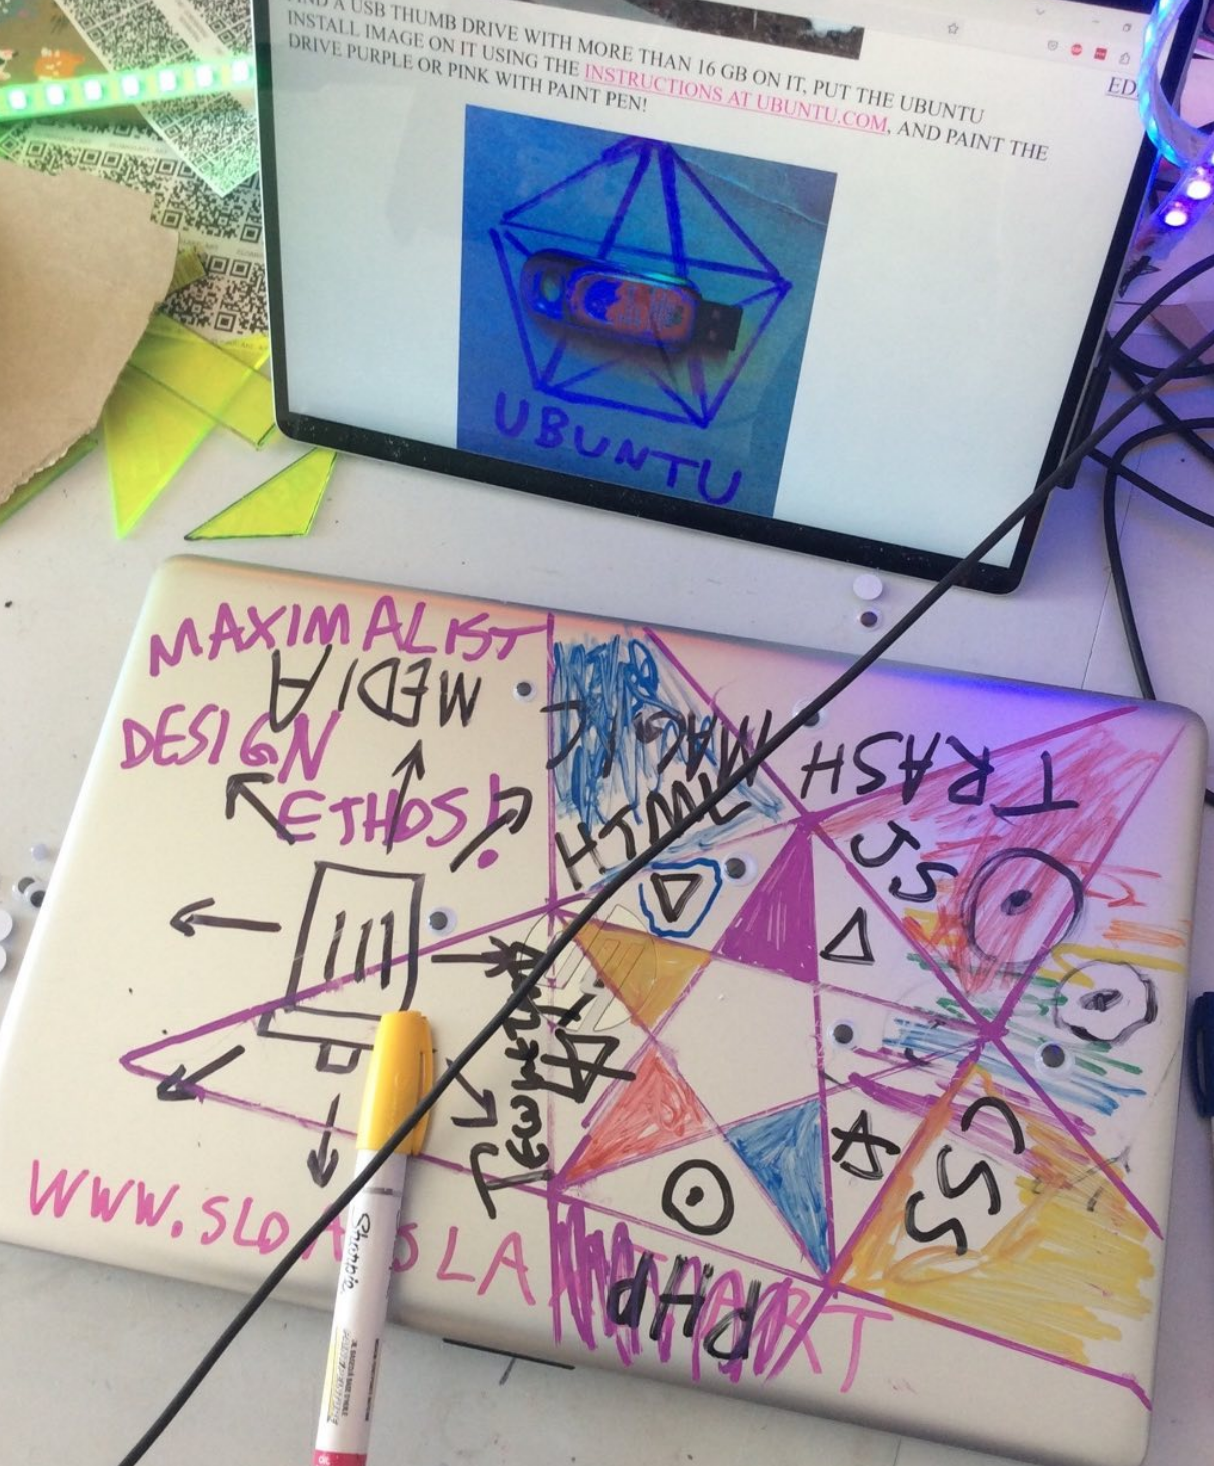 AND A USB THUMB DRIVE WITH MORE THAN 16 GB ON IT, PUT THE UBUNTU
INSTALL IMAGE ON IT USING THE INSTRUCTIONS AT UBUNTU.COM, AND PAINT THE
DRIVE PURPLE OR PINK WITH PAINT PEN!
UBUNTU
MAXIMALIST
MEDIA
DESIGN
ETHOS!
MAGIC
HTML
TRASH
JS
CSS
PHP
WWW.
Sharpie